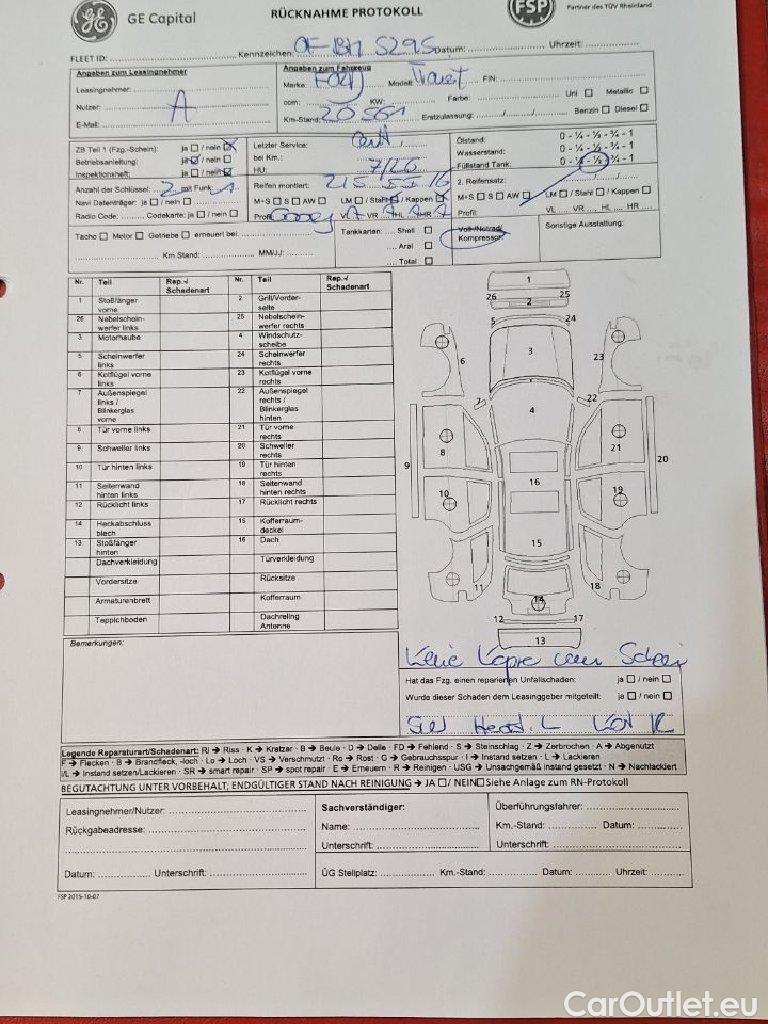 GE GE Capital RÜCKNAHME PROTOKOLL FSP Partner des TÜV Rheinland
FLEET ID: Kennzeichen: Datum: Uhrzeit:
Angaben zum Leasingnehmer
Leasingnehmer:
Nutzer: A
E-Mail:
Angaben zum Fahrzeug
Marke: Ford Modell: FIN:
ccm: KW: Farbe: Uni Metallic
Km-Stand: 20 561 Erstzulassung: / / Benzin Diesel
ZB Teil 1 (Fzg.-Schein): ja / nein
Betriebsanleitung: ja / nein
Inspektionsheft: ja / nein
Anzahl der Schlüssel: 2 mit Funk 1
Navi Datenträger: ja / nein
Radio Code: Codekarte: ja / nein
Letzter Service:
bei Km.:
HU: 7/26
Reifen montiert: 215 55 16
M+S S AW LM / Stahl / Kappen
Profil VL A VR A HL A HR A
Ölstand: 0 - ¼ - ½ - ¾ - 1
Wasserstand: 0 - ¼ - ½ - ¾ - 1
Füllstand Tank: 0 - ¼ - ½ - ¾ - 1
2. Reifensatz:
M+S S AW LM / Stahl / Kappen
Profil: V/L VR HL HR
Tacho Motor Getriebe erneuert bei:
Km Stand: MM/JJ:
Tankkarten: Shell
Aral
Total
Voll-/Notrad/
Kompressor:
Sonstige Ausstattung:
Nr. Teil Rep.-/ Schadenart Nr. Teil Rep.-/ Schadenart
1 Stoßfänger vorne 2 Grill/Vorderseite
26 Nebelscheinwerfer links 25 Nebelscheinwerfer rechts
3 Motorhaube 4 Windschutzscheibe
5 Scheinwerfer links 24 Scheinwerfer rechts
6 Kotflügel vorne links 23 Kotflügel vorne rechts
7 Außenspiegel links / Blinkerglas vorne 22 Außenspiegel rechts / Blinkerglas hinten
8 Tür vorne links 21 Tür vorne rechts
9 Schweller links 20 Schweller rechts
10 Tür hinten links 19 Tür hinten rechts
11 Seitenwand hinten links 18 Seitenwand hinten rechts
12 Rücklicht links 17 Rücklicht rechts
14 Heckabschluss blech 15 Kofferraumdeckel
13 Stoßfänger hinten 16 Dach
Dachverkleidung Türverkleidung
Vordersitze Rücksitze
Armaturenbrett Kofferraum
Teppichboden Dachreling Antenne
1
26 25
2
5 24
6 3 23
7 22
4
8 21
9 20
10 16 19
15
11 18
14
12 17
13
Bemerkungen:
Hat das Fzg. einen reparierten Unfallschaden: ja / nein
Wurde dieser Schaden dem Leasinggeber mitgeteilt: ja / nein
Legende Reparaturart/Schadenart: RI ➔ Riss · K ➔ Kratzer · B ➔ Beule · D ➔ Delle · FD ➔ Fehlend · S ➔ Steinschlag · Z ➔ Zerbrochen · A ➔ Abgenutzt
F ➔ Flecken · B ➔ Brandfleck, -loch · Lo ➔ Loch · VS ➔ Verschmutzt · Ro ➔ Rost · G ➔ Gebrauchsspur · I ➔ Instand setzen · L ➔ Lackieren
I/L ➔ Instand setzen/Lackieren · SR ➔ smart repair · SP ➔ spot repair · E ➔ Erneuern · R ➔ Reinigen · USG ➔ Unsachgemäß instand gesetzt · N ➔ Nachlackiert
BEGUTACHTUNG UNTER VORBEHALT; ENDGÜLTIGER STAND NACH REINIGUNG ➔ JA / NEIN Siehe Anlage zum RN-Protokoll
Leasingnehmer/Nutzer:
Rückgabeadresse:
Datum: Unterschrift:
Sachverständiger:
Name:
Unterschrift:
Überführungsfahrer:
Km.-Stand: Datum:
Unterschrift:
ÜG Stellplatz: Km.-Stand: Datum: Uhrzeit:
FSP 2015-10-07
CarOutlet.eu